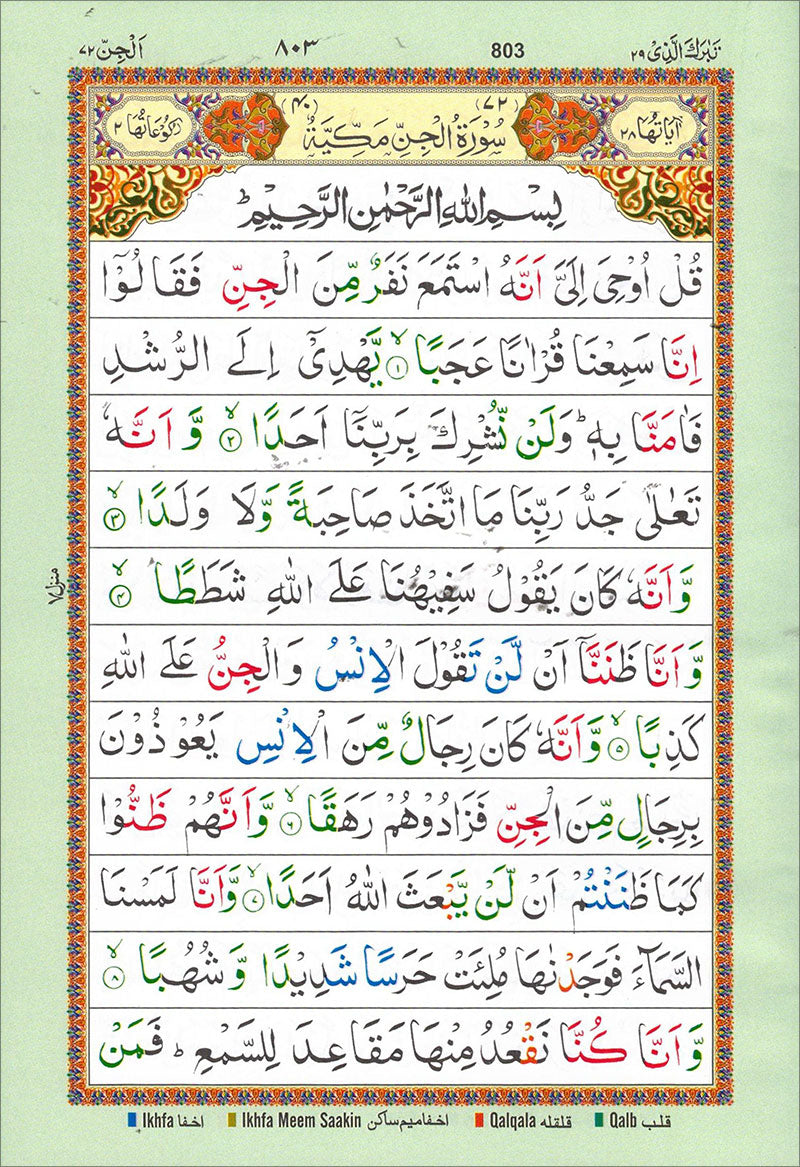 تَبٰرَكَ الَّذِیْ ٢٩ 803 ٨٠٣ اَلْجِنّ ٧٢
اٰیَاتُهَا ٢٨ (٧٢) سُوْرَةُ الْجِنِّ مَكِّیَّةٌ (٤٠) رُكُوْعَاتُهَا ٢
بِسْمِ اللهِ الرَّحْمٰنِ الرَّحِیْمِ ؕ
قُلْ اُوْحِیَ اِلَیَّ اَنَّهُ اسْتَمَعَ نَفَرٌ مِّنَ الْجِنِّ فَقَالُوْۤا
اِنَّا سَمِعْنَا قُرْاٰنًا عَجَبًا ۙ۝١ یَّهْدِیْۤ اِلَی الرُّشْدِ
فَاٰمَنَّا بِهٖ ؕ وَلَنْ نُّشْرِكَ بِرَبِّنَاۤ اَحَدًا ۙ۝٢ وَّ اَنَّهٗ
تَعٰلٰی جَدُّ رَبِّنَا مَا اتَّخَذَ صَاحِبَةً وَّلَا وَلَدًا ۙ۝٣
وَّاَنَّهٗ كَانَ یَقُوْلُ سَفِیْهُنَا عَلَی اللهِ شَطَطًا ۙ۝٤
وَّاَنَّا ظَنَنَّاۤ اَنْ لَّنْ تَقُوْلَ الْاِنْسُ وَالْجِنُّ عَلَی اللهِ
كَذِبًا ۙ۝٥ وَّاَنَّهٗ كَانَ رِجَالٌ مِّنَ الْاِنْسِ یَعُوْذُوْنَ
بِرِجَالٍ مِّنَ الْجِنِّ فَزَادُوْهُمْ رَهَقًا ۙ۝٦ وَّاَنَّهُمْ ظَنُّوْا
كَمَا ظَنَنْتُمْ اَنْ لَّنْ یَّبْعَثَ اللهُ اَحَدًا ۙ۝٧ وَّاَنَّا لَمَسْنَا
السَّمَآءَ فَوَجَدْنٰهَا مُلِئَتْ حَرَسًا شَدِیْدًا وَّ شُهُبًا ۙ۝٨
وَّ اَنَّا كُنَّا نَقْعُدُ مِنْهَا مَقَاعِدَ لِلسَّمْعِ ؕ فَمَنْ
منزل ٧
Ikhfa اخفا Ikhfa Meem Saakin اخفا میم ساکن Qalqala قلقله Qalb قلب